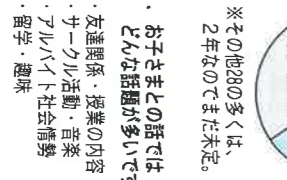 ※その他28の多くは、
2年なのでまだ未定。
・お子さまとの話では
どんな話題が多いです
・友達関係・授業の内容
・サークル活動・音楽
・アルバイト社会情勢
・留学・趣味